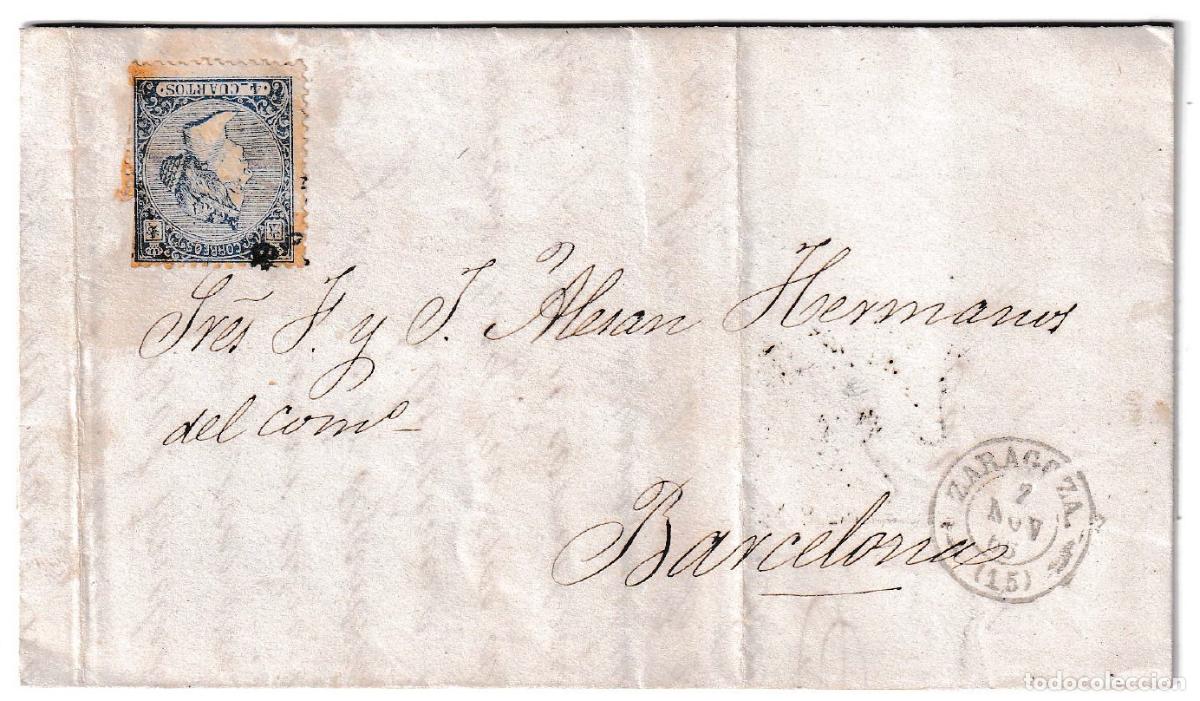 4 CUARTOS
CORREOS
Sres F. y J. Alesan Hermanos
del como
Barcelona
ZARAGOZA.
2
NOV
66
(15)
todocoleccion